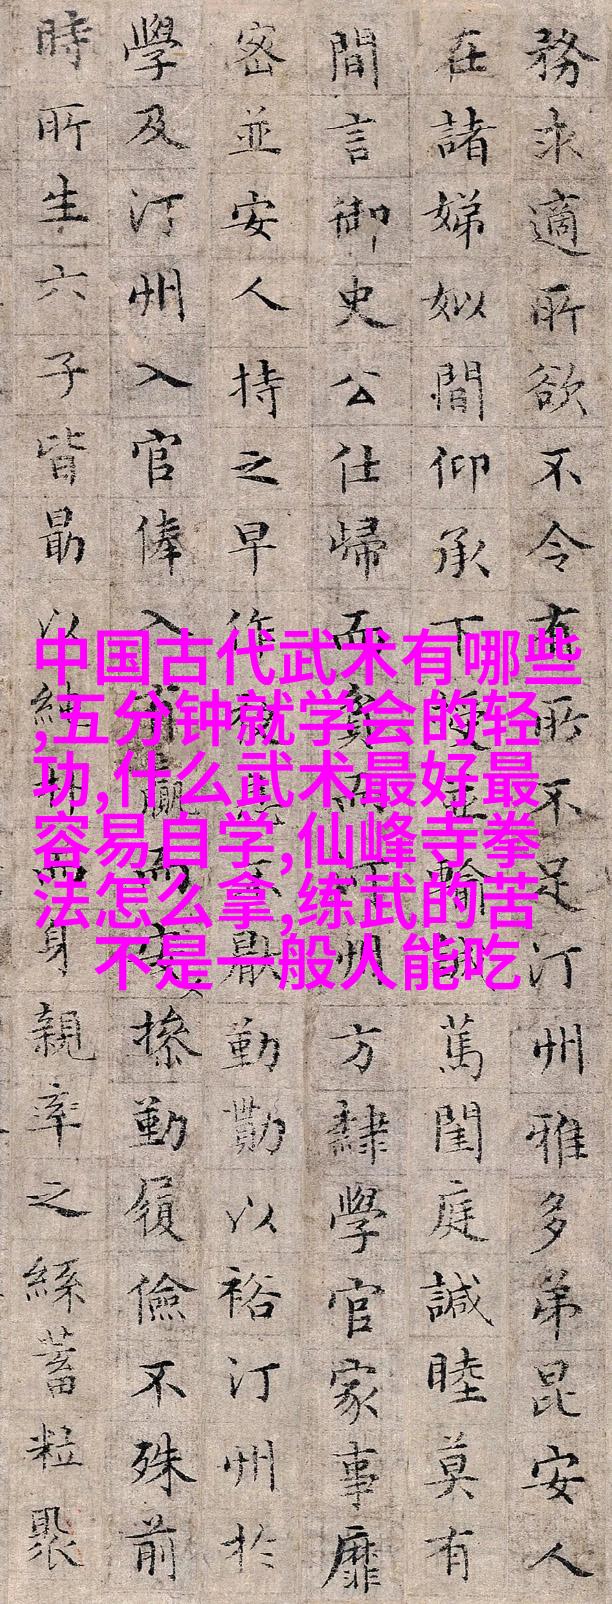 務求適所欲不令有所不足汀州雅多弟昆安人
在諸娣姒間仰承下並輸閨庭諴睦莫有
間言御史公仕歸而貧汀州方隸學官家事靡
密並安人持之早作不厭勤勩以裕汀州於
學及汀州入官俸入贏而安操勤履儉不殊前
時所生六子皆勗以純而身親率之絲蓄粒聚
中国古代武术有哪些
,五分钟就学会的轻
功,什么武术最好最
容易自学,仙峰寺拳
法怎么拿,练武的苦
不是一般人能吃